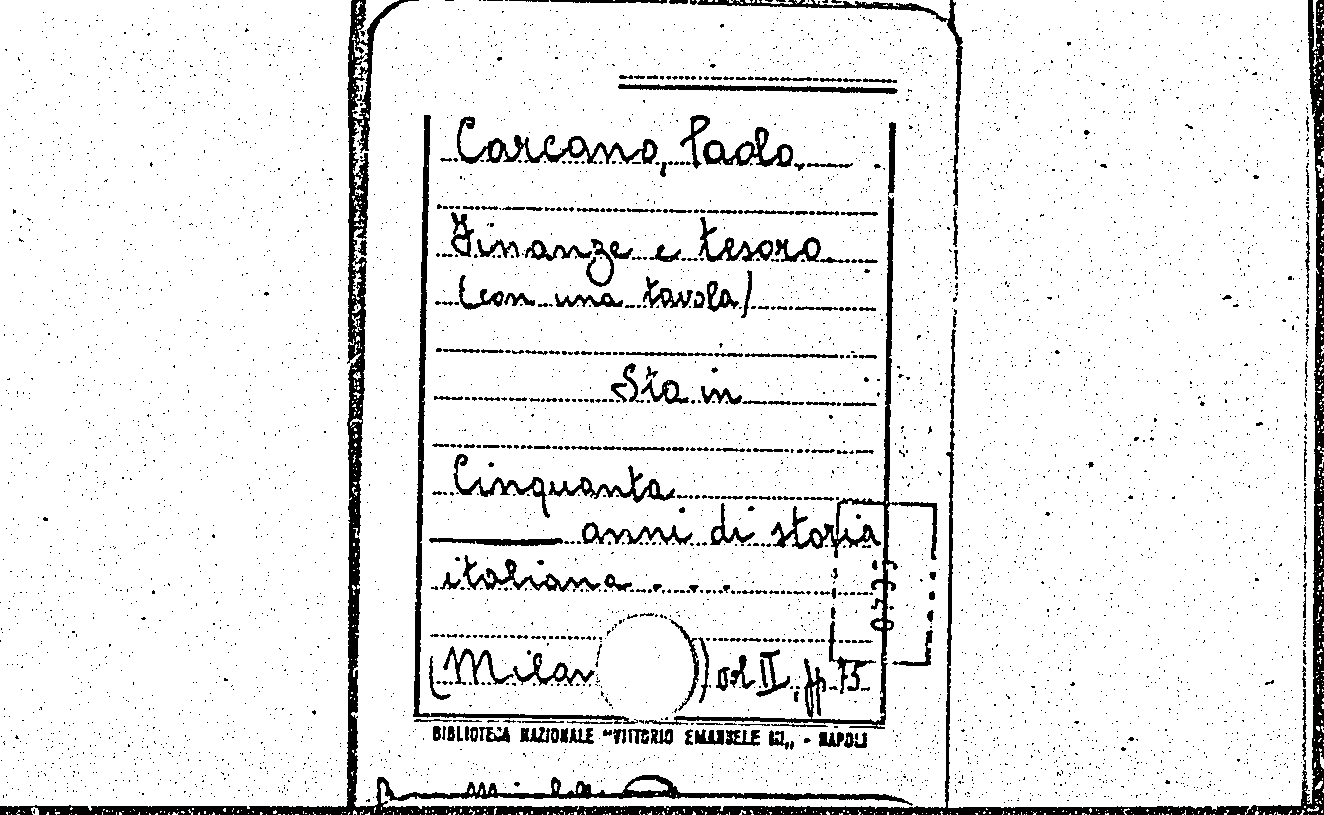 Carcano, Paolo.
Finanze e tesoro.
(con una tavola)
Sta in
Cinquanta
anni di storia
italiana . . .
(Milan ) vol II, pp 75
BIBLIOTECA NAZIONALE "VITTORIO EMANUELE III„ - NAPOLI